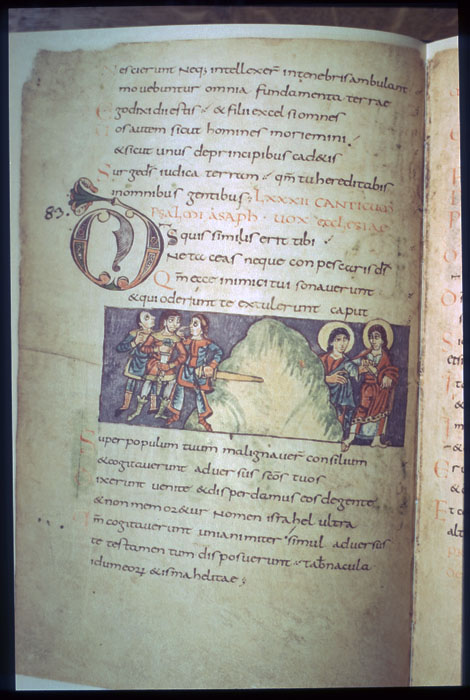 escierunt Neq; intellexer̄ intenebris ambulant
movebuntur omnia fundamenta terrae
E godixi dii estis · & filii excelsi omnes
U os autem sicut homines moriemini ·
& sicut unus de principibus cad&is
S urge ds̄ iudica terram · qm̄ tu hereditabis
inomnibus gentibus; LXXXII CANTICUM
PSALMI ASAPH · UOX ECCLESIAE
83.
DS quis similis erit tibi
Ne taceas neque conpescaris ds̄
Qm̄ ecce inimici tui sonaverunt
& qui oderunt te extulerunt caput
S uper populum tuum malignaver̄ consilium
& cogitaverunt adversus sc̄os tuos
D ixerunt venite & disperdamus eos degente
& non memor&ur Nomen israhel ultra
Q m̄ cogitaverunt unianimiter simul adversus
te testamentum disposuerunt · tab̄nacula
idumeoꝝ & ismahelitae;